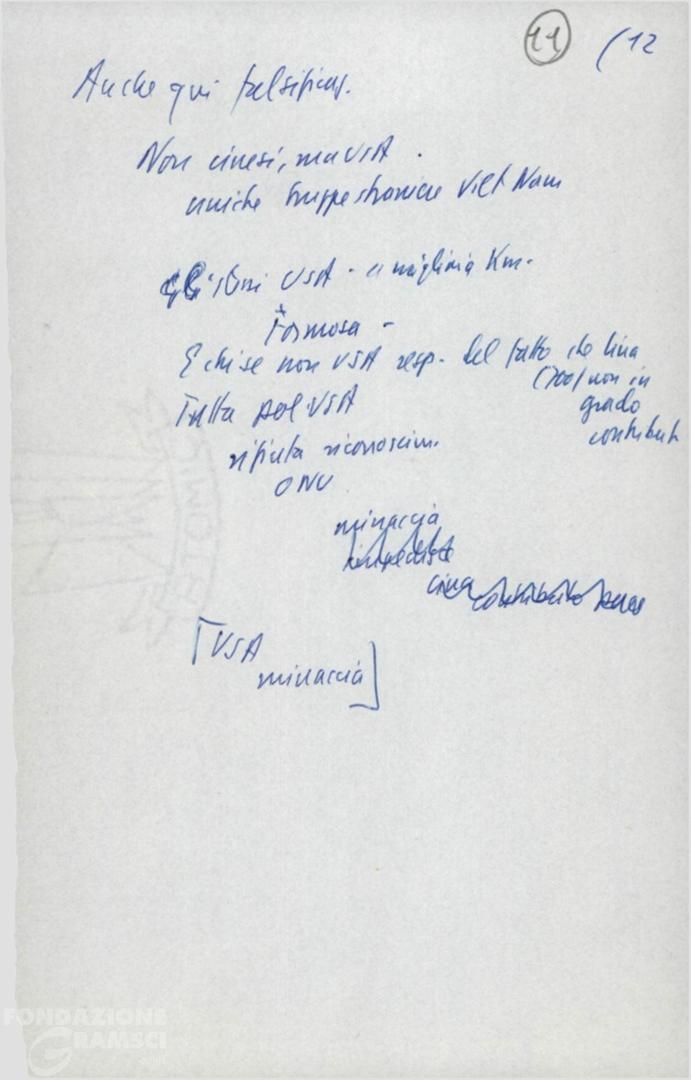 11 (12
Anche qui falsificaz.
Non cinesi, ma USA.
uniche truppe straniere Viet Nam
USA - a migliaia Km.
Formosa -
E chi se non USA resp. del fatto che Cina
(700) non in
grado
contribut
Tutta pol. USA
rifiuta riconoscim.
ONU
minaccia
Cina contributo pace
[USA
minaccia]
FONDAZIONE
GRAMSCI